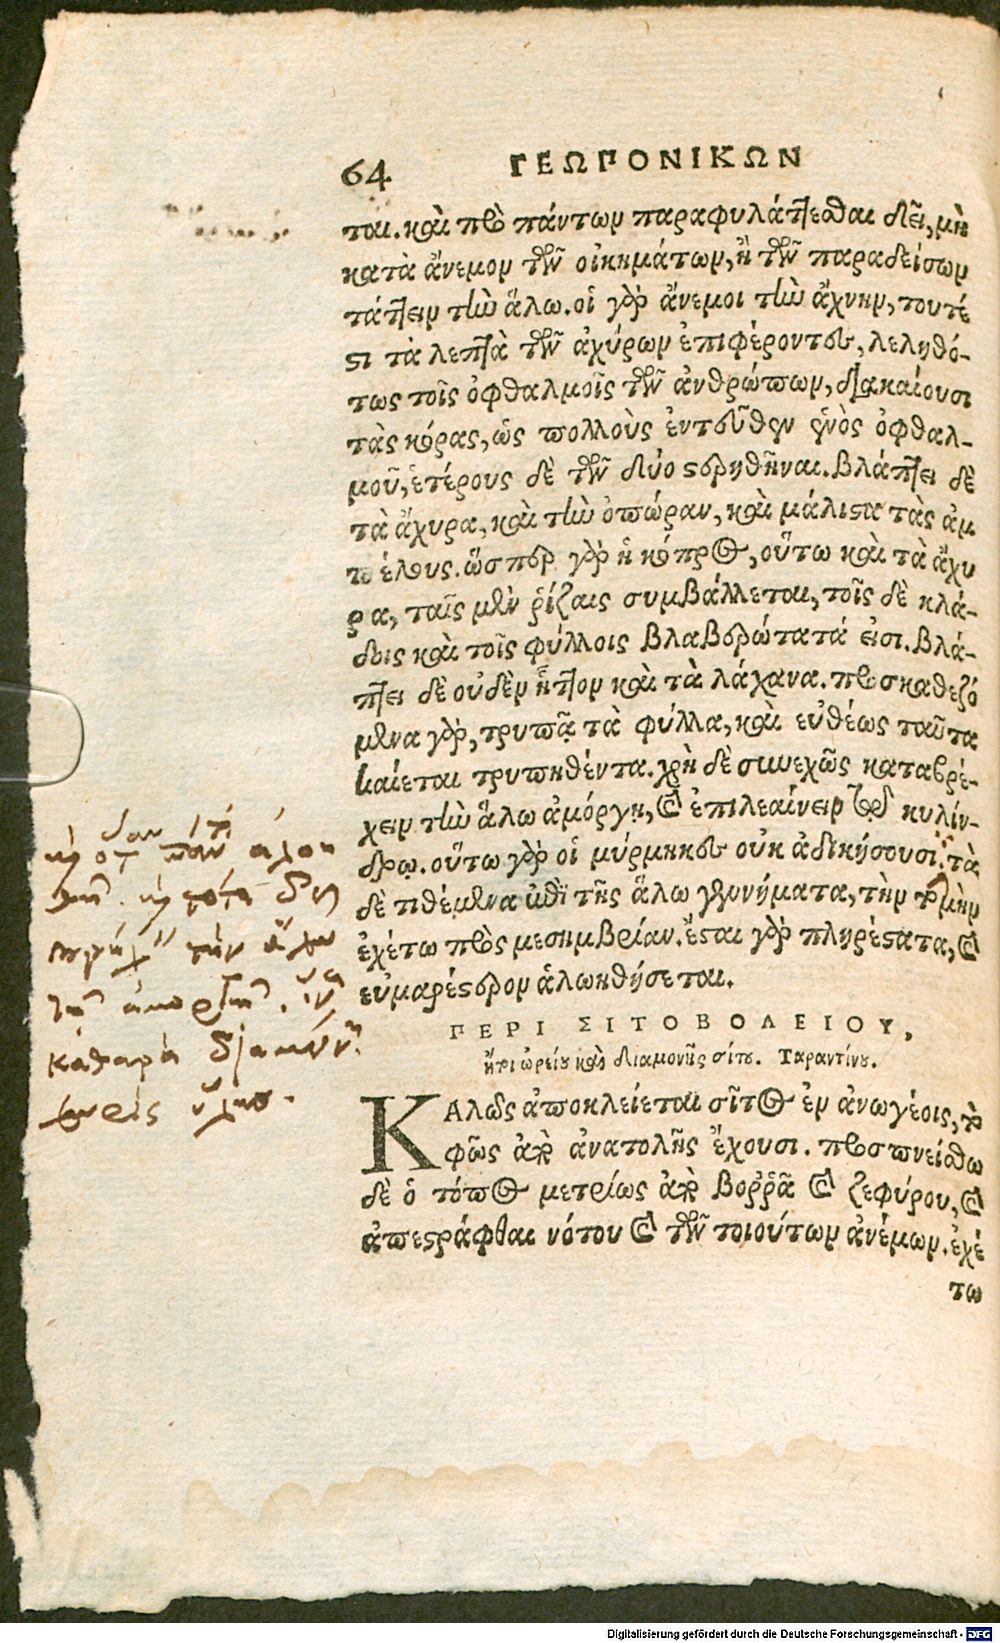 64 ΓΕΩΠΟΝΙΚΩΝ
ται. καὶ πρὸ πάντων παραφυλάττεσθαι δεῖ, μὴ
κατὰ ἄνεμον τῶν οἰκημάτων, ἢ τῶν παραδείσων
τάττειν τὴν ἅλω. οἱ γὰρ ἄνεμοι τὴν ἄχνην, τουτέ
στι τὰ λεπτὰ τῶν ἀχύρων ἐπιφέροντες, λεληθό-
τως τοῖς ὀφθαλμοῖς τῶν ἀνθρώπων, διακαίουσι
τὰς κόρας, ὡς πολλοὺς ἐντεῦθεν ἑνὸς ὀφθαλ-
μοῦ, ἑτέρους δὲ τῶν δύο στερηθῆναι. βλάπτει δὲ
τὰ ἄχυρα, καὶ τὴν ὀπώραν, καὶ μάλιστα τὰς ἀμ
πέλους. ὥσπερ γὰρ ἡ κόπρος, οὕτω καὶ τὰ ἄχυ
ρα, ταῖς μὲν ῥίζαις συμβάλλεται, τοῖς δὲ κλά-
δοις καὶ τοῖς φύλλοις βλαβερώτατά εἰσι. βλά-
πτει δὲ οὐδὲν ἧττον καὶ τὰ λάχανα. προσκαθεζό
μενα γὰρ, τρυπᾷ τὰ φύλλα, καὶ εὐθέως ταῦτα
καίεται τρυπηθέντα. χρὴ δὲ συνεχῶς καταβρέ-
χειν τὴν ἅλω ἀμόργῃ, καὶ ἐπιλεαίνειν κυλίν-
δρῳ. οὕτω γὰρ οἱ μύρμηκες οὐκ ἀδικήσουσι. τὰ
δὲ τιθέμενα ἐπὶ τῆς ἅλω γεννήματα, τὴν τομὴν
ἐχέτω πρὸς μεσημβρίαν. ἔσται γὰρ πληρέστατα, καὶ
εὐμαρέστερον ἁλωηθήσεται.
ΠΕΡΙ ΣΙΤΟΒΟΛΕΙΟΥ,
ἤτοι ὡρείου καὶ διαμονῆς σίτου. Ταραντίνου.
ΚΑλῶς ἀποκλείεται σῖτος ἐν ἀνωγέοις, τὸ
φῶς ἀπὸ ἀνατολῆς ἔχουσι. προσπνείσθω
δὲ ὁ τόπος μετρίως ἀπὸ βορῤᾶ καὶ ζεφύρου, καὶ
ἀπεστράφθαι νότου καὶ τῶν τοιούτων ἀνέμων. ἐχέ
τω
καθαρὰ
χωρὶς